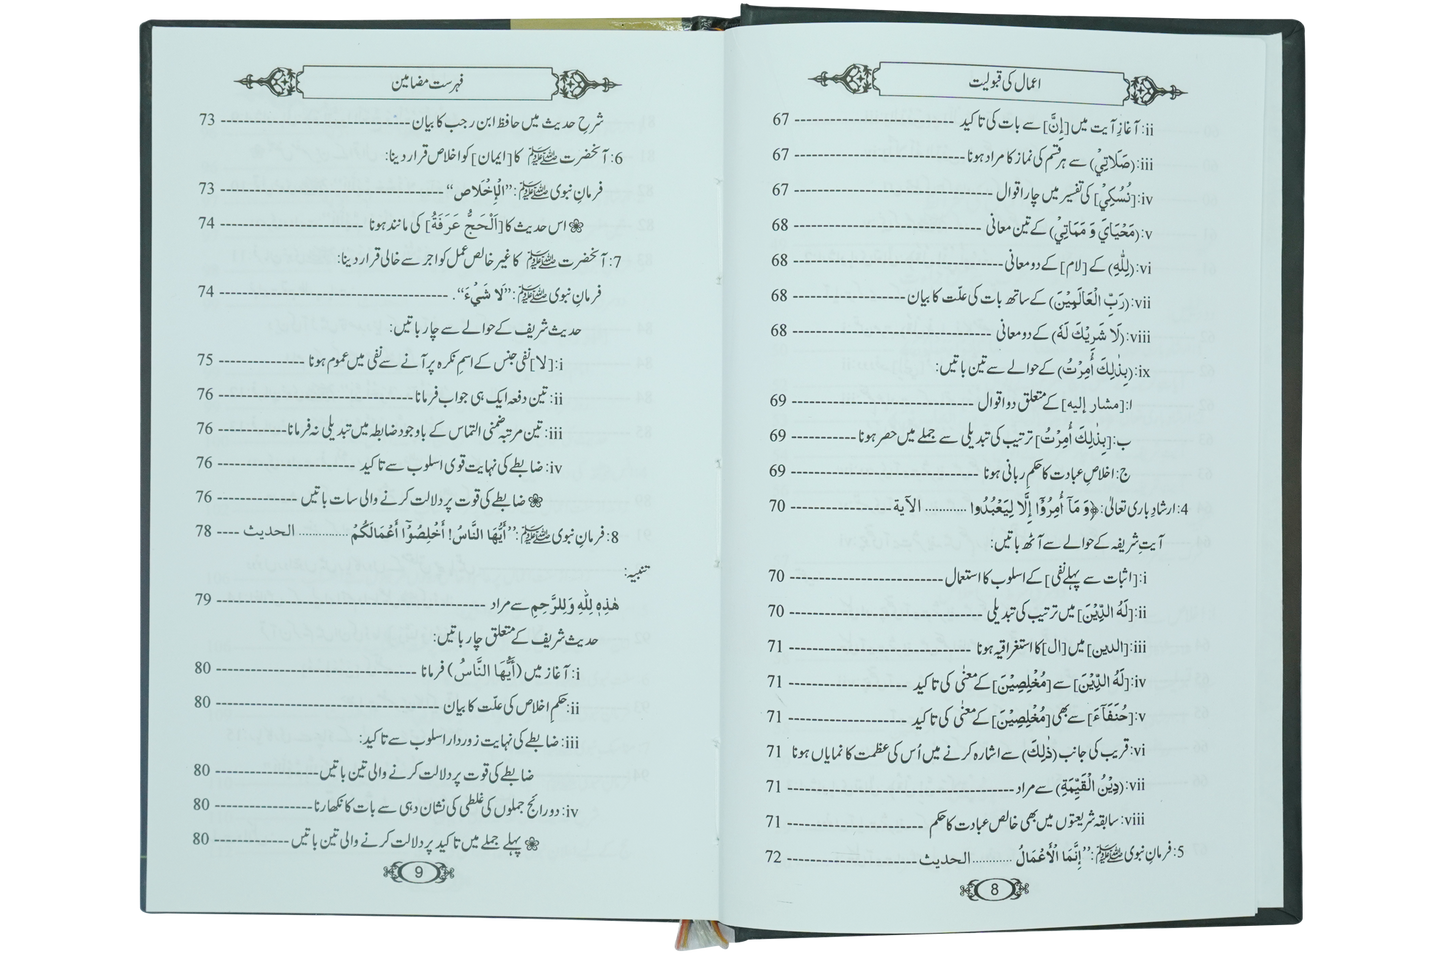 اعمال کی قبولیت
ii: آغازِ آیت میں [إِنَّ] سے بات کی تاکید 67
iii: (صَلَاتِيْ) سے ہر قسم کی نماز کا مراد ہونا 67
iv: [نُسُكِيْ] کی تفسیر میں چار اقوال 67
v: (مَحْيَايَ وَ مَمَاتِيْ) کے تین معانی 68
vi: (لِلّٰهِ) کے [لام] کے دو معانی 68
vii: (رَبِّ الْعَالَمِيْنَ) کے ساتھ بات کی علّت کا بیان 68
viii: (لَا شَرِيْكَ لَهُ) کے دو معانی 68
ix: (بِذٰلِكَ أُمِرْتُ) کے حوالے سے تین باتیں:
ا: [مشار إليه] کے متعلق دو اقوال 69
ب: [بِذٰلِكَ أُمِرْتُ] ترتیب کی تبدیلی سے جملے میں حصر ہونا 69
ج: اخلاصِ عبادت کا حکمِ ربانی ہونا 69
4: ارشادِ باری تعالیٰ: ﴿وَ مَآ أُمِرُوْٓا إِلَّا لِيَعْبُدُوا ........... الآية 70
آیتِ شریفہ کے حوالے سے آٹھ باتیں:
i: [اثبات سے پہلے نفی] کے اسلوب کا استعمال 70
ii: [لَهُ الدِّيْنَ] میں ترتیب کی تبدیلی 70
iii: [الدین] میں [ال] کا استغراقیہ ہونا 71
iv: [لَهُ الدِّيْنَ] سے [مُخْلِصِيْنَ] کے معنٰی کی تاکید 71
v: [حُنَفَآءَ] سے بھی [مُخْلِصِيْنَ] کے معنٰی کی تاکید 71
vi: قریب کی جانب (ذٰلِكَ) سے اشارہ کرنے میں اُس کی عظمت کا نمایاں ہونا 71
vii: (دِيْنُ الْقَيِّمَةِ) سے مراد 71
viii: سابقہ شریعتوں میں بھی خالص عبادت کا حکم 71
5: فرمانِ نبوی ﷺ: ”إِنَّمَا الْأَعْمَالُ ........... الحدیث 72
8
فہرست مضامین
شرحِ حدیث میں حافظ ابن رجب کا بیان 73
6: آنحضرت ﷺ کا [ایمان] کو اخلاص قرار دینا:
فرمانِ نبوی ﷺ: ”الْإِخْلَاص“ 73
❀ اس حدیث کا [اَلْحَجُّ عَرَفَةُ] کی مانند ہونا 74
7: آنحضرت ﷺ کا غیر خالص عمل کو اجر سے خالی قرار دینا:
فرمانِ نبوی ﷺ: ”لَا شَيْءَ“. 74
حدیث شریف کے حوالے سے چار باتیں:
i: [لا] نفی جنس کے اسمِ نکرہ پر آنے سے نفی میں عموم ہونا 75
ii: تین دفعہ ایک ہی جواب فرمانا 76
iii: تین مرتبہ ضمنی التماس کے باوجود ضابطہ میں تبدیلی نہ فرمانا 76
iv: ضابطے کی نہایت قوی اسلوب سے تاکید 76
❀ ضابطے کی قوت پر دلالت کرنے والی سات باتیں 76
8: فرمانِ نبوی ﷺ: ”أَيُّهَا النَّاسُ! أَخْلِصُوْٓا أَعْمَالَكُمْ ............. الحدیث 78
تنبیہ:
هٰذِهٖ لِلّٰهِ وَلِلرَّحِمِ سے مراد 79
حدیث شریف کے متعلق چار باتیں:
i: آغاز میں (أَيُّهَا النَّاسُ) فرمانا 80
ii: حکمِ اخلاص کی علّت کا بیان 80
iii: ضابطے کی نہایت زوردار اسلوب سے تاکید:
ضابطے کی قوت پر دلالت کرنے والی تین باتیں 80
iv: دو رائج جملوں کی غلطی کی نشان دہی سے بات کا نکھارنا 80
❀ پہلے جملے میں تاکید پر دلالت کرنے والی تین باتیں 80
9